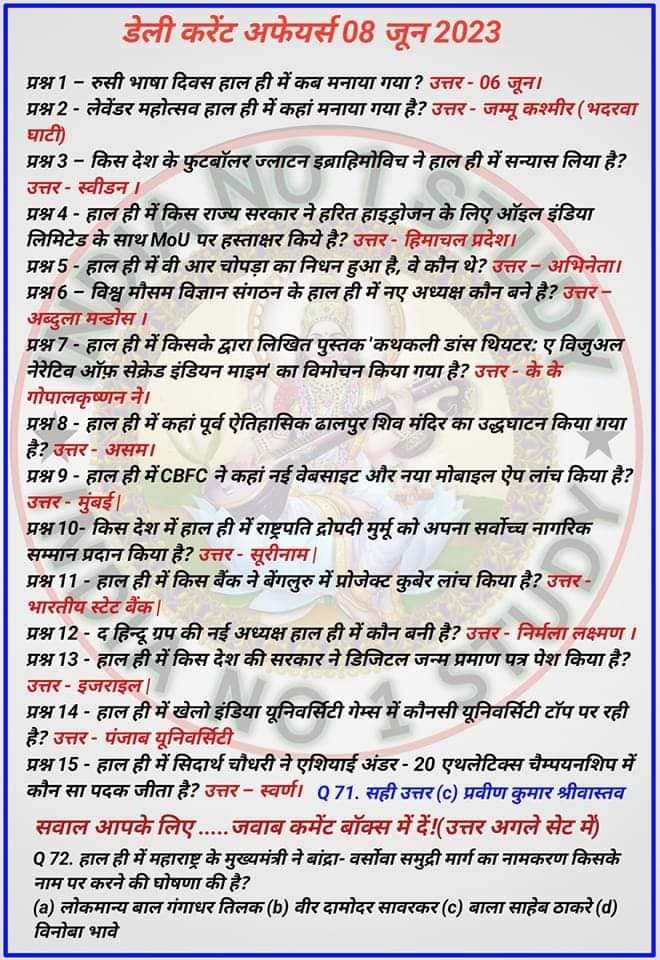 डेली करेंट अफेयर्स 08 जून 2023
प्रश्न 1 – रुसी भाषा दिवस हाल ही में कब मनाया गया ? उत्तर - 06 जून।
प्रश्न 2 - लेवेंडर महोत्सव हाल ही में कहां मनाया गया है? उत्तर - जम्मू कश्मीर ( भदरवा
घाटी)
प्रश्न 3 – किस देश के फुटबॉलर ज्लाटन इब्राहिमोविच ने हाल ही में सन्यास लिया है?
उत्तर - स्वीडन ।
प्रश्न 4 - हाल ही में किस राज्य सरकार ने हरित हाइड्रोजन के लिए ऑइल इंडिया
लिमिटेड के साथ MoU पर हस्ताक्षर किये है? उत्तर - हिमाचल प्रदेश।
प्रश्न 5 - हाल ही में वी आर चोपड़ा का निधन हुआ है, वे कौन थे? उत्तर – अभिनेता।
प्रश्न 6 – विश्व मौसम विज्ञान संगठन के हाल ही में नए अध्यक्ष कौन बने है? उत्तर –
अब्दुला मन्डोस ।
प्रश्न 7 - हाल ही में किसके द्वारा लिखित पुस्तक 'कथकली डांस थियटर: ए विजुअल
नेरेटिव ऑफ़ सेक्रेड इंडियन माइम' का विमोचन किया गया है? उत्तर - के के
गोपालकृष्णन ने।
प्रश्न 8 - हाल ही में कहां पूर्व ऐतिहासिक ढालपुर शिव मंदिर का उद्धघाटन किया गया
है? उत्तर - असम।
प्रश्न 9 - हाल ही में CBFC ने कहां नई वेबसाइट और नया मोबाइल ऐप लांच किया है?
उत्तर - मुंबई |
प्रश्न 10- किस देश में हाल ही में राष्ट्रपति द्रोपदी मुर्मू को अपना सर्वोच्च नागरिक
सम्मान प्रदान किया है? उत्तर - सूरीनाम |
प्रश्न 11 - हाल ही में किस बैंक ने बेंगलुरु में प्रोजेक्ट कुबेर लांच किया है? उत्तर -
भारतीय स्टेट बैंक |
प्रश्न 12 - द हिन्दू ग्रप की नई अध्यक्ष हाल ही में कौन बनी है? उत्तर - निर्मला लक्ष्मण ।
प्रश्न 13 - हाल ही में किस देश की सरकार ने डिजिटल जन्म प्रमाण पत्र पेश किया है?
उत्तर - इजराइल |
प्रश्न 14 - हाल ही में खेलो इंडिया यूनिवर्सिटी गेम्स में कौनसी यूनिवर्सिटी टॉप पर रही
है? उत्तर - पंजाब यूनिवर्सिटी
प्रश्न 15 - हाल ही में सिदार्थ चौधरी ने एशियाई अंडर - 20 एथलेटिक्स चैम्पयनशिप में
कौन सा पदक जीता है? उत्तर – स्वर्ण। Q 71. सही उत्तर (c) प्रवीण कुमार श्रीवास्तव
सवाल आपके लिए .....जवाब कमेंट बॉक्स में दें!(उत्तर अगले सेट में)
Q 72. हाल ही में महाराष्ट्र के मुख्यमंत्री ने बांद्रा- वर्सोवा समुद्री मार्ग का नामकरण किसके
नाम पर करने की घोषणा की है?
(a) लोकमान्य बाल गंगाधर तिलक (b) वीर दामोदर सावरकर (c) बाला साहेब ठाकरे (d)
विनोबा भावे
INDIA NO 1 STUDY
INDIA NO 1 STUDY